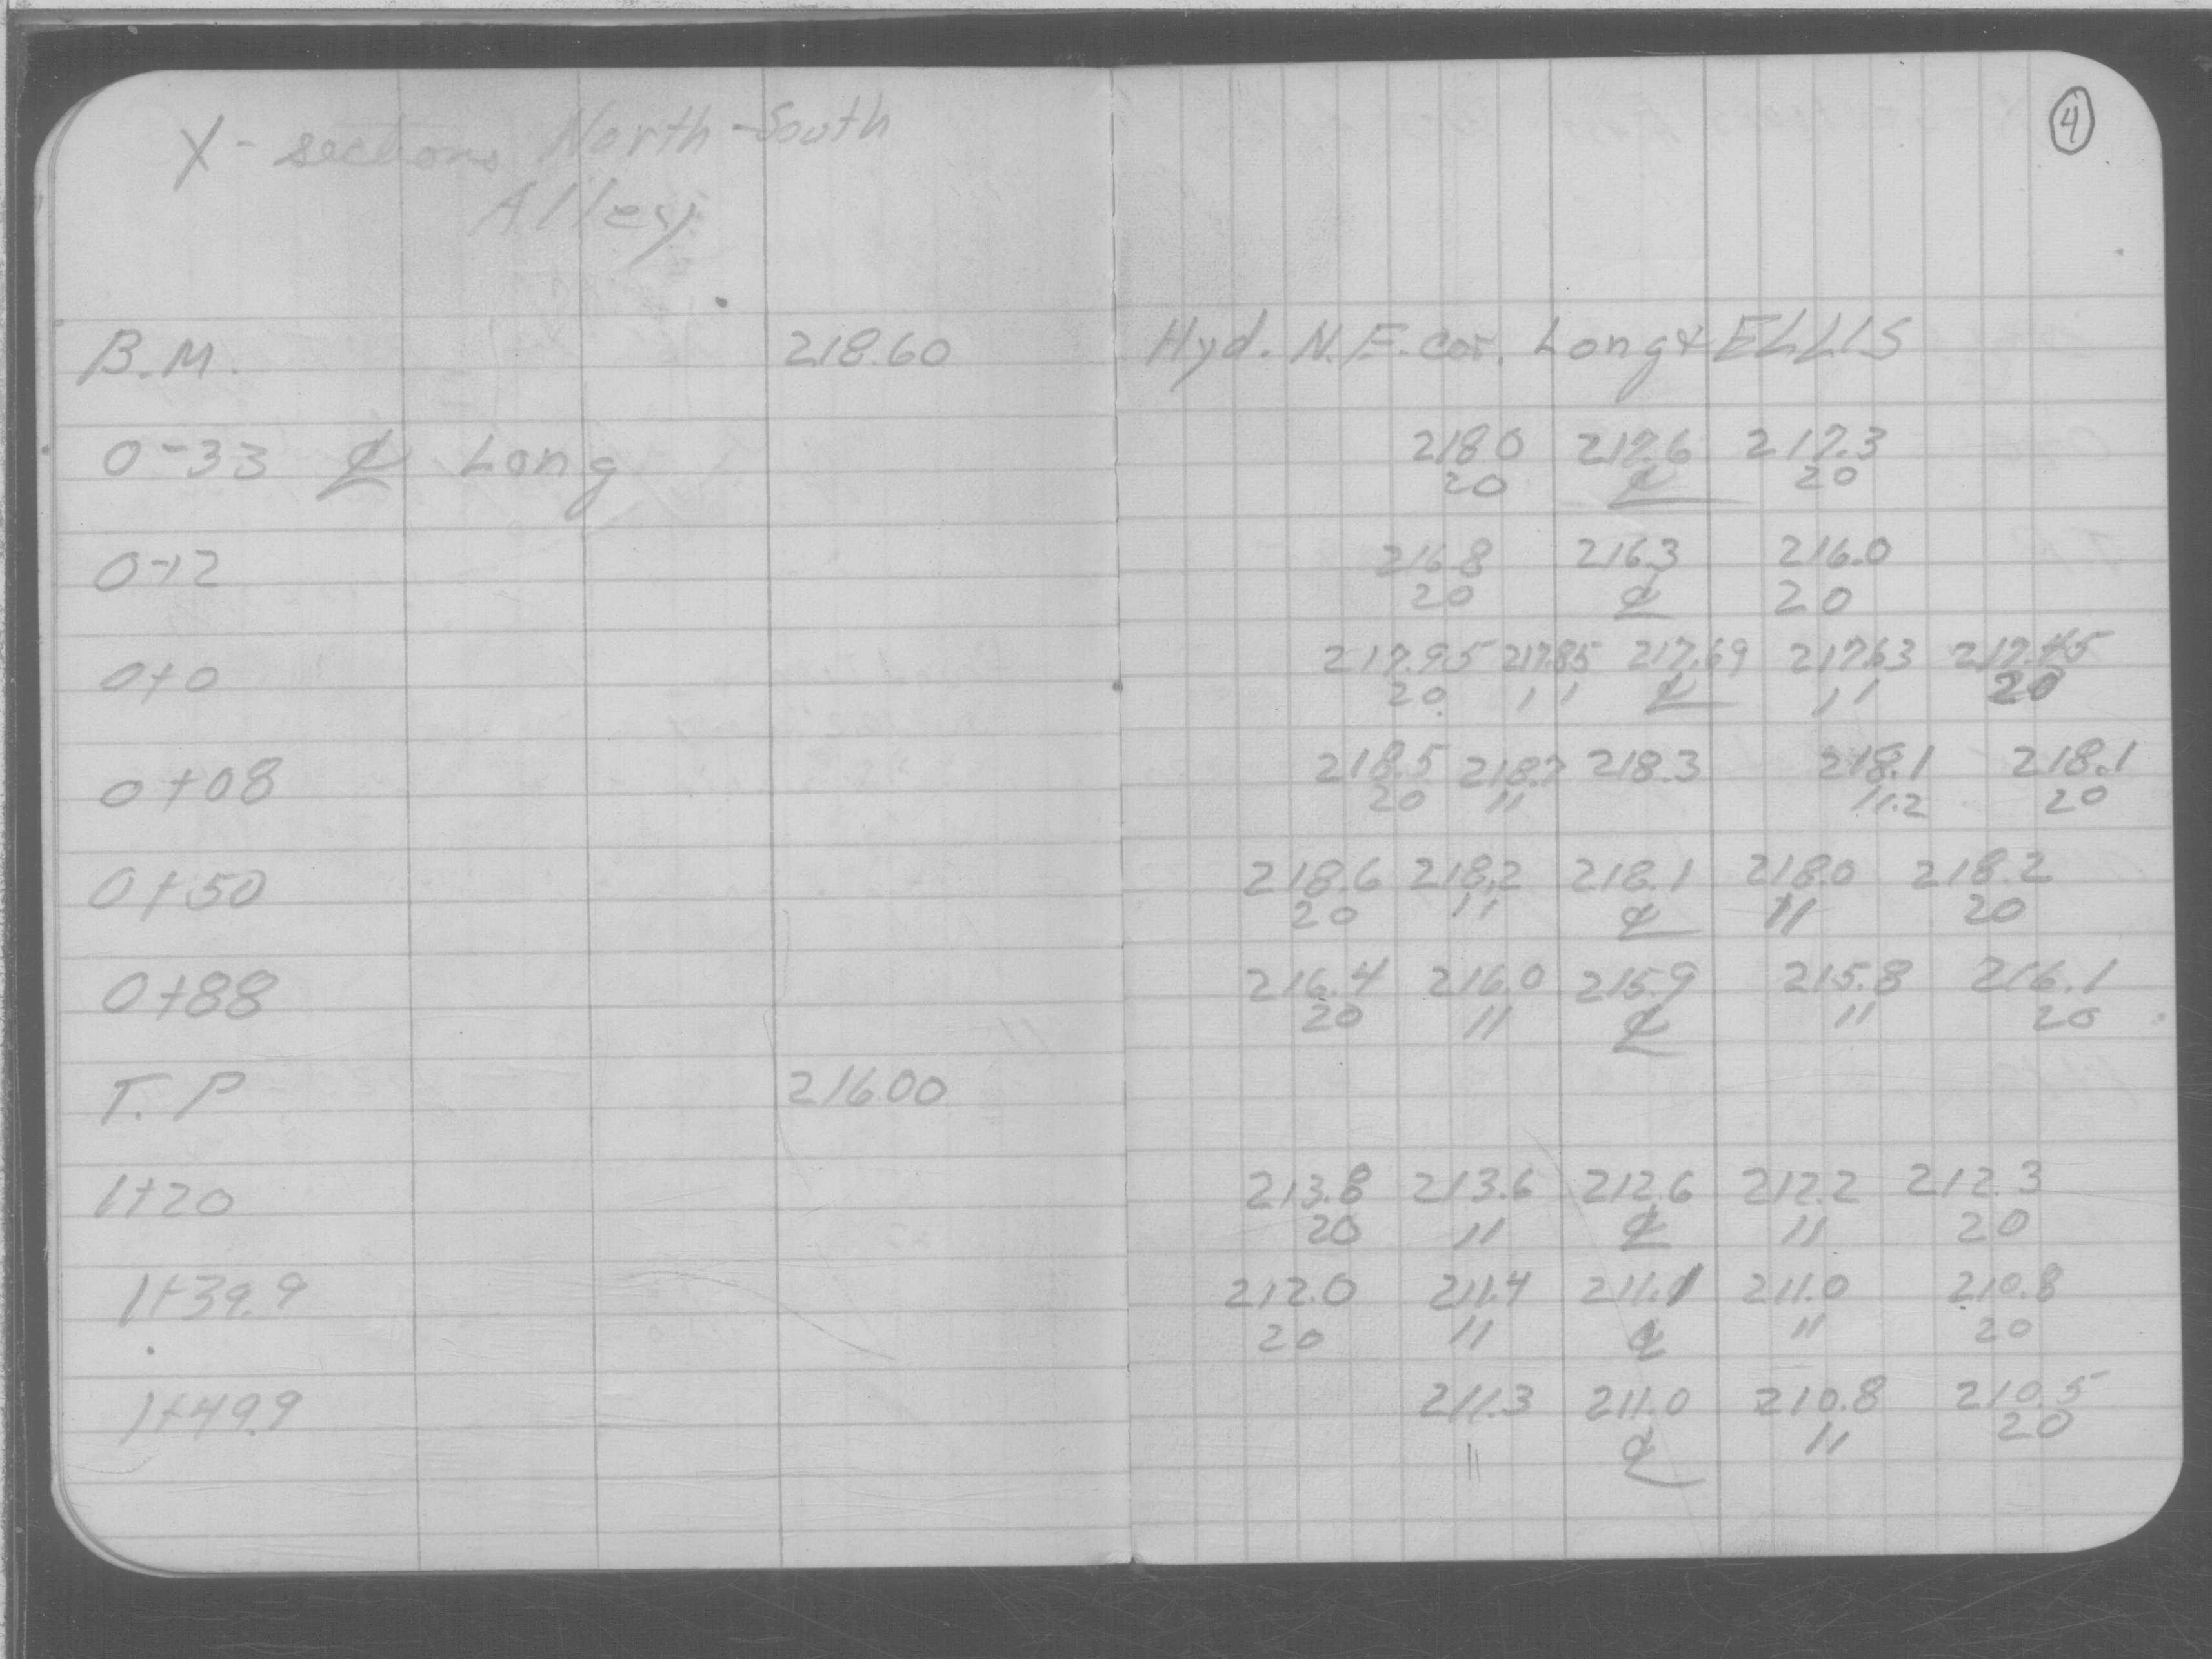 4
X-sections North-South
Alley
B.M. 218.60 Hyd. N.E. cor. Long & ELLIS
0-33 ℄ Long 218.0 217.6 217.3
20 ℄ 20
0-12 216.8 216.3 216.0
20 ℄ 20
0+0 217.95 217.85 217.69 217.63 217.45
20 11 ℄ 11 20
0+08 218.5 218.7 218.3 218.1 218.1
20 11 11.2 20
0+50 218.6 218.2 218.1 218.0 218.2
20 11 ℄ 11 20
0+88 216.4 216.0 215.9 215.8 216.1
20 11 ℄ 11 20
T.P 216.00
1+20 213.8 213.6 212.6 212.2 212.3
20 11 ℄ 11 20
1+39.9 212.0 211.4 211.1 211.0 210.8
20 11 ℄ 11 20
1+49.9 211.3 211.0 210.8 210.5
11 ℄ 11 20